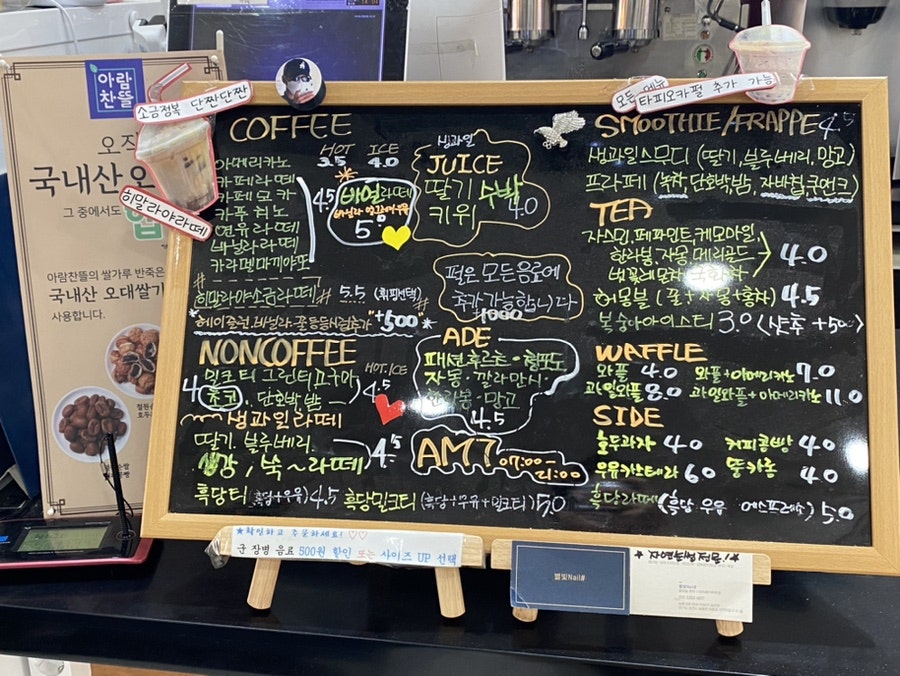 아람
찬뜰
국내산 오
그 중에서도
아람찬뜰의 쌀가루 반죽은
국내산 오대쌀가
사용합니다.
소금정복 단짠단짠
히말라야라떼
모든 메뉴
타피오카펄 추가 가능
COFFEE
HOT ICE
아메리카노 3.5 4.0
카페라떼
카페모카
카푸치노
연유라떼
바닐라라떼
카라멜마끼야또
4.5
5
#히말라야소금라떼# 5.5 (휘핑선택)
+500
NONCOFFEE
HOT.ICE
밀크티 그린티 고구마
4 초코. 단호박밤 4.5
생과일라떼
딸기. 블루베리.
생강, 쑥~라떼 4.5
흑당티 (흑당+우유) 4.5 흑당밀크티 (흑당+우유+밀크티) 5.0
생과일
JUICE
딸기 수박
키위 4.0
펄은 모든음료에
추가가능합니다
1000
ADE
패션후르츠·청포도
자몽·깔라만시·
망고
4.5
AM7 07:00~
21:00
SMOOTHIE/FRAPPE 4.5
생과일스무디 (딸기,블루베리,망고)
프라페 (녹차,단호박밤,자바칩,쿠앤크)
TEA
자스민,페퍼민트,케모마일,
한라봉,자몽,메리골드
벚꽃레몬차 국화차
4.0
허몽블 (꿀+자몽+홍차) 4.5
복숭아아이스티 3.0 (샷추+500)
WAFFLE
와플 4.0 와플+아메리카노 7.0
과일와플 8.0 과일와플+아메리카노 11.0
SIDE
호두과자 4.0 커피콩빵 4.0
우유카스테라 6.0 뚱카롱 4.0
흑당라떼 (흑당 우유 에스프레소) 5.0
★확인하고 주문하세요! ♡♡
군 장병 음료 500원 할인 또는 사이즈 UP 선택
별빛Nail#
별빛Nail#